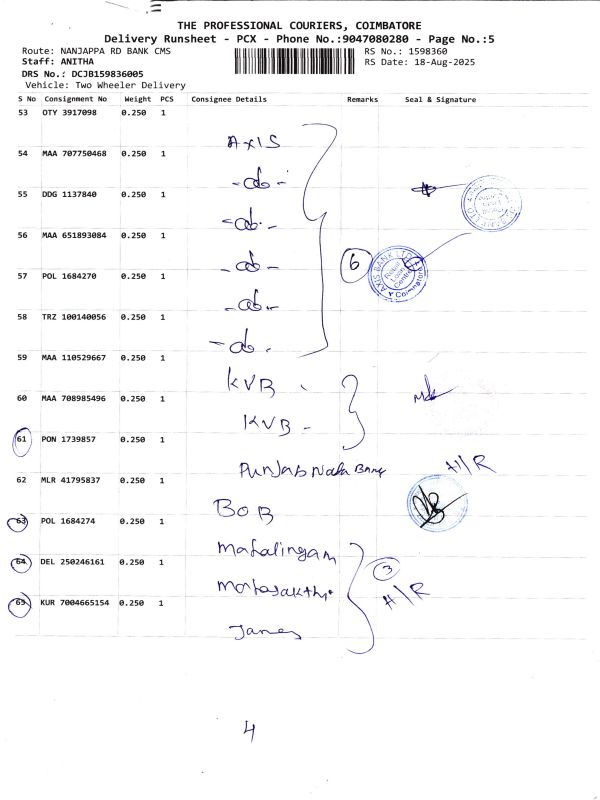 THE PROFESSIONAL COURIERS, COIMBATORE
Delivery Runsheet - PCX - Phone No.:9047080280 - Page No.:5
Route: NANJAPPA RD BANK CMS
RS No.: 1598360
Staff: ANITHA
RS Date: 18-Aug-2025
DRS No.: DCJB159836005
Vehicle: Two Wheeler Delivery
S No Consignment No Weight PCS Consignee Details Remarks Seal & Signature
53 OTY 3917098 0.250 1
AXIS
54 MAA 707750468 0.250 1
-do-
55 DDG 1137840 0.250 1
-do-
56 MAA 651893084 0.250 1
-do-
6
AXIS BANK LTD
57 POL 1684270 0.250 1
-do-
58 TRZ 100140056 0.250 1
-do-
59 MAA 110529667 0.250 1
KVB
60 MAA 708985496 0.250 1
KVB -
61 PON 1739857 0.250 1
Punjab Natn Bank
H/R
62 MLR 41795837 0.250 1
BOB
63 POL 1684274 0.250 1
Mahalingam
3
64 DEL 250246161 0.250 1
H/R
65 KUR 7004665154 0.250 1
James
4